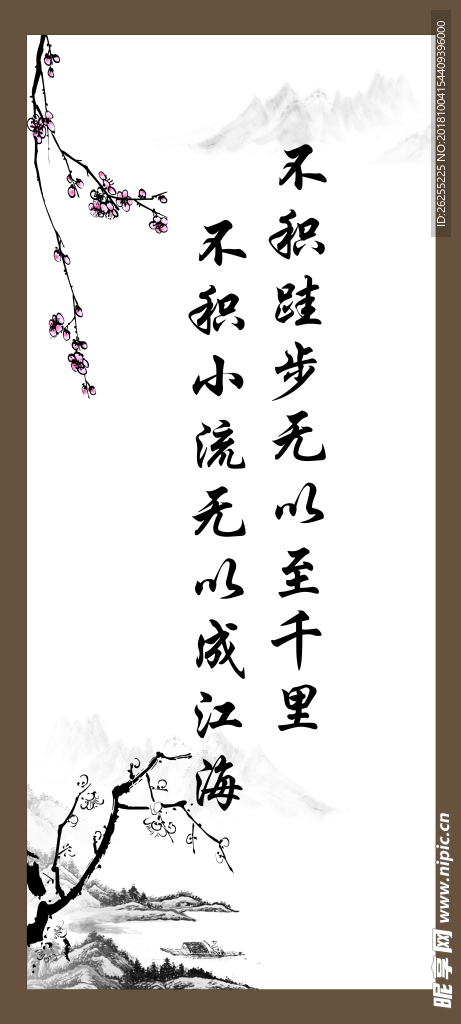 不积跬步无以至千里
不积小流无以成江海
ID:26255225 NO:20181004154409396000
昵享网 www.nipic.cn